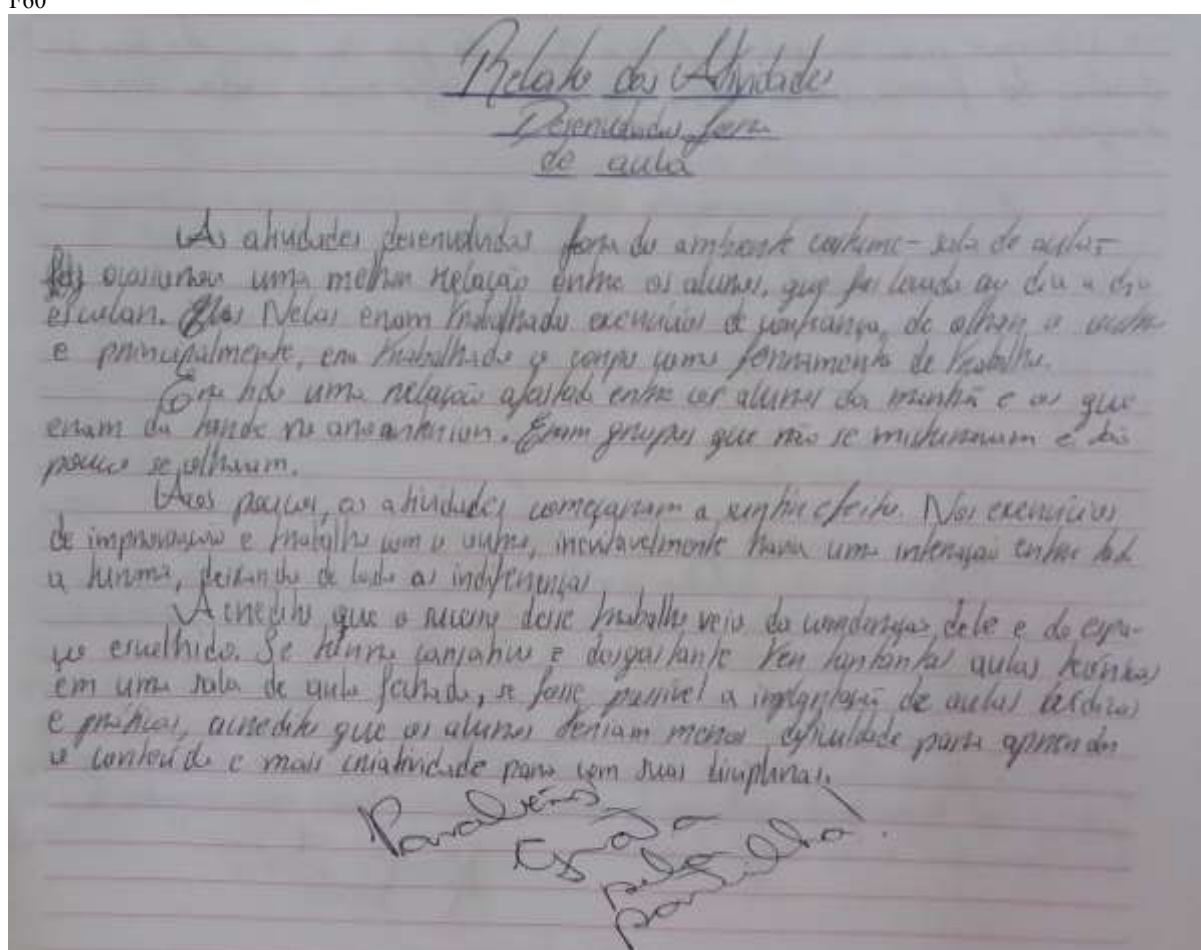 F60
Relato das Atividades
Desenvolvidas fora
de aula
As atividades desenvolvidas fora do ambiente costume - sala de aula -
ocasionou uma melhor relação entre os alunos, que foi levada ao dia a dia
escolar. Nelas eram trabalhado exercícios de confiança, de olhar o outro
e principalmente, era trabalhado o corpo como ferramenta de trabalho.
uma relação afastada entre os alunos da manhã e os que
eram da tarde no ano anterior. Eram grupos que não se misturavam e tão
pouco se olhavam.
Aos poucos, as atividades começaram a surtir efeito. Nos exercícios
de improvisação e trabalho com o outro, inevitavelmente havia uma interação entre toda
a turma, deixando de lado as indiferenças.
Acredito que o sucesso desse trabalho veio da condução dele e do espa-
ço escolhido. Se torna cansativo e desgastante ter aulas teóricas
em uma sala de aula fechada, se fosse possível a implantação de aulas
e práticas, acredito que os alunos teriam menos dificuldade para aprender
o conteúdo e mais criatividade para com suas disciplinas.
Parabéns
pela
partilha!